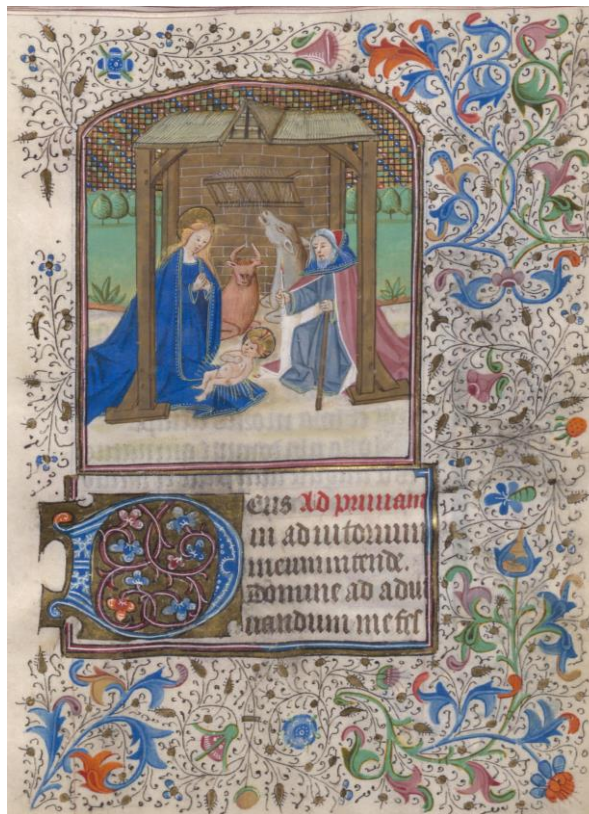 Deus Ad primam
in adiutorium
meum intende.
Domine ad adiu
uandum me fes